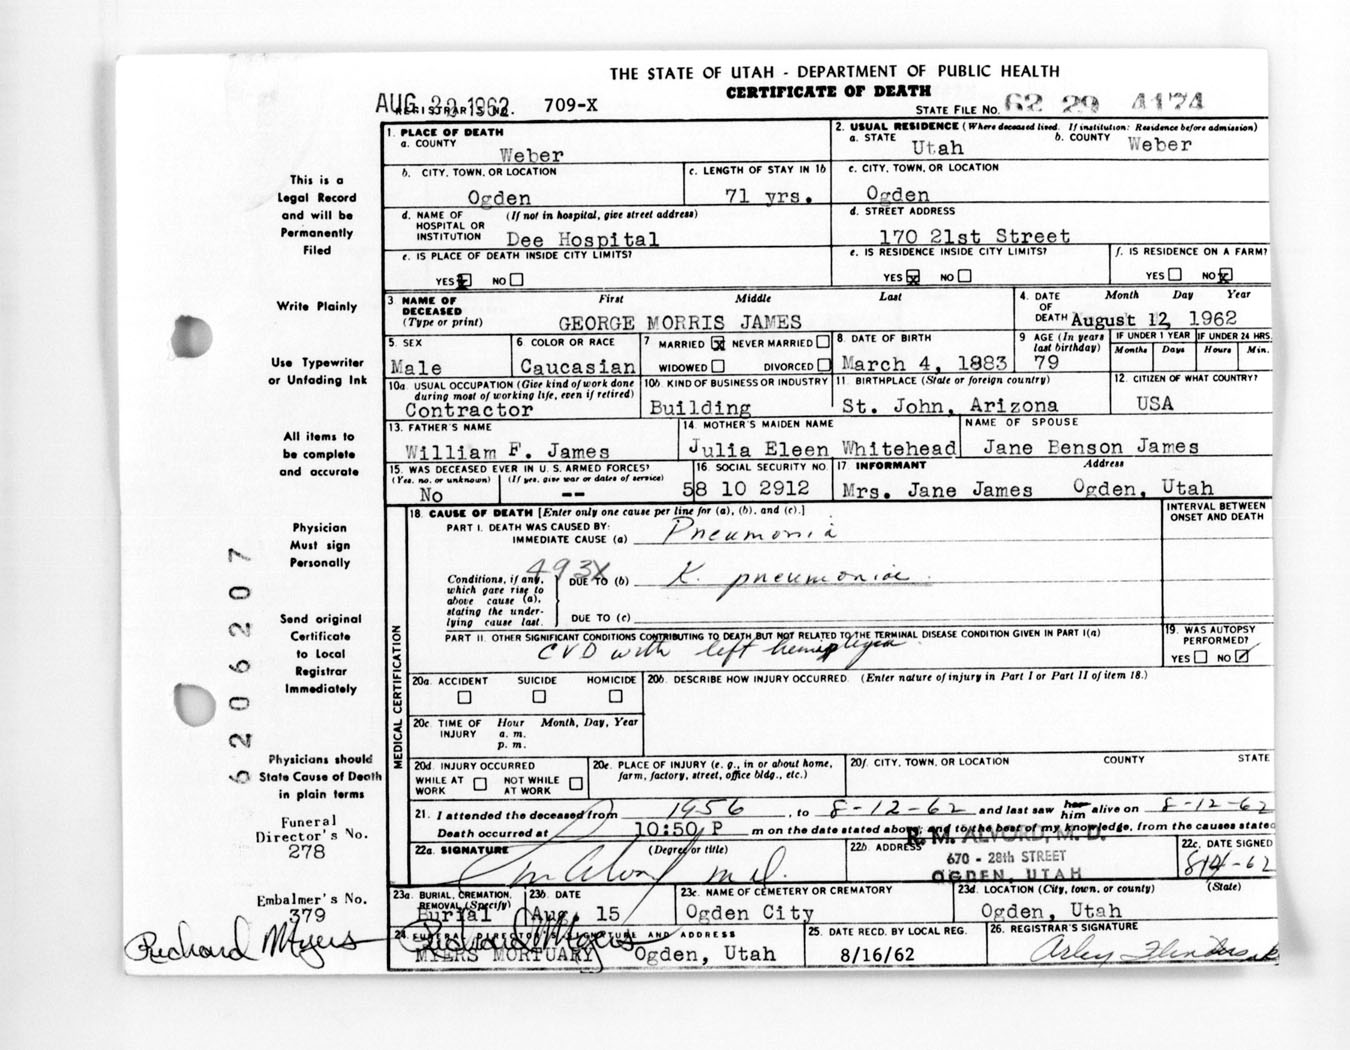 THE STATE OF UTAH - DEPARTMENT OF PUBLIC HEALTH
CERTIFICATE OF DEATH
AUG 1962
REGISTRAR'S NO. 709-X
STATE FILE NO. 62 29 4174
1. PLACE OF DEATH
a. COUNTY
Weber
2. USUAL RESIDENCE (Where deceased lived. If institution: Residence before admission)
a. STATE Utah b. COUNTY Weber
b. CITY, TOWN, OR LOCATION
Ogden
c. LENGTH OF STAY IN 1b
71 yrs.
c. CITY, TOWN, OR LOCATION
Ogden
d. NAME OF HOSPITAL OR INSTITUTION (If not in hospital, give street address)
Dee Hospital
d. STREET ADDRESS
170 21st Street
e. IS PLACE OF DEATH INSIDE CITY LIMITS?
YES x NO
e. IS RESIDENCE INSIDE CITY LIMITS?
YES x NO
f. IS RESIDENCE ON A FARM?
YES NO x
3 NAME OF DECEASED (Type or print) First Middle Last
GEORGE MORRIS JAMES
4. DATE OF DEATH Month Day Year
August 12, 1962
5. SEX
Male
6. COLOR OR RACE
Caucasian
7 MARRIED x NEVER MARRIED
WIDOWED DIVORCED
8. DATE OF BIRTH
March 4, 1883
9 AGE (In years last birthday)
79
IF UNDER 1 YEAR IF UNDER 24 HRS.
Months Days Hours Min.
10a. USUAL OCCUPATION (Give kind of work done during most of working life, even if retired)
Contractor
10b. KIND OF BUSINESS OR INDUSTRY
Building
11. BIRTHPLACE (State or foreign country)
St. John, Arizona
12. CITIZEN OF WHAT COUNTRY?
USA
13. FATHER'S NAME
William F. James
14. MOTHER'S MAIDEN NAME
Julia Eleen Whitehead
NAME OF SPOUSE
Jane Benson James
15. WAS DECEASED EVER IN U. S. ARMED FORCES?
(Yes, no, or unknown) (If yes, give war or dates of service)
No --
16. SOCIAL SECURITY NO.
58 10 2912
17 INFORMANT Address
Mrs. Jane James Ogden, Utah
MEDICAL CERTIFICATION
18. CAUSE OF DEATH [Enter only one cause per line for (a), (b), and (c).]
INTERVAL BETWEEN ONSET AND DEATH
PART I. DEATH WAS CAUSED BY:
IMMEDIATE CAUSE (a) Pneumonia
493X
Conditions, if any, which gave rise to above cause (a), stating the underlying cause last.
DUE TO (b) K. pneumoniae
DUE TO (c)
PART II. OTHER SIGNIFICANT CONDITIONS CONTRIBUTING TO DEATH BUT NOT RELATED TO THE TERMINAL DISEASE CONDITION GIVEN IN PART I(a)
CVD with left hemiplegia
19. WAS AUTOPSY PERFORMED?
YES NO ✓
20a. ACCIDENT SUICIDE HOMICIDE
20b. DESCRIBE HOW INJURY OCCURRED. (Enter nature of injury in Part I or Part II of item 18.)
20c. TIME OF INJURY Hour Month, Day, Year
a. m.
p. m.
20d. INJURY OCCURRED
WHILE AT WORK NOT WHILE AT WORK
20e. PLACE OF INJURY (e. g., in or about home, farm, factory, street, office bldg., etc.)
20f. CITY, TOWN, OR LOCATION COUNTY STATE
21. I attended the deceased from 1956, to 8-12-62 and last saw her him alive on 8-12-62
Death occurred at 10:50 P m on the date stated above; and to the best of my knowledge, from the causes stated
22a. SIGNATURE (Degree or title)
M.D.
22b. ADDRESS
R. M. ALVORD, M. D.
670 - 28th STREET
OGDEN, UTAH
22c. DATE SIGNED
23a. BURIAL, CREMATION, REMOVAL (Specify)
Burial
23b. DATE
Aug. 15
23c. NAME OF CEMETERY OR CREMATORY
Ogden City
23d. LOCATION (City, town, or county) (State)
Ogden, Utah
24. FUNERAL DIRECTOR'S SIGNATURE AND ADDRESS
Richard Myers
MYERS MORTUARY Ogden, Utah
25. DATE RECD. BY LOCAL REG.
8/16/62
26. REGISTRAR'S SIGNATURE
This is a
Legal Record
and will be
Permanently
Filed
Write Plainly
Use Typewriter
or Unfading Ink
All items to
be complete
and accurate
Physician
Must sign
Personally
Send original
Certificate
to Local
Registrar
Immediately
Physicians should
State Cause of Death
in plain terms
Funeral
Director's No.
278
Embalmer's No.
379
Richard Myers
6206207